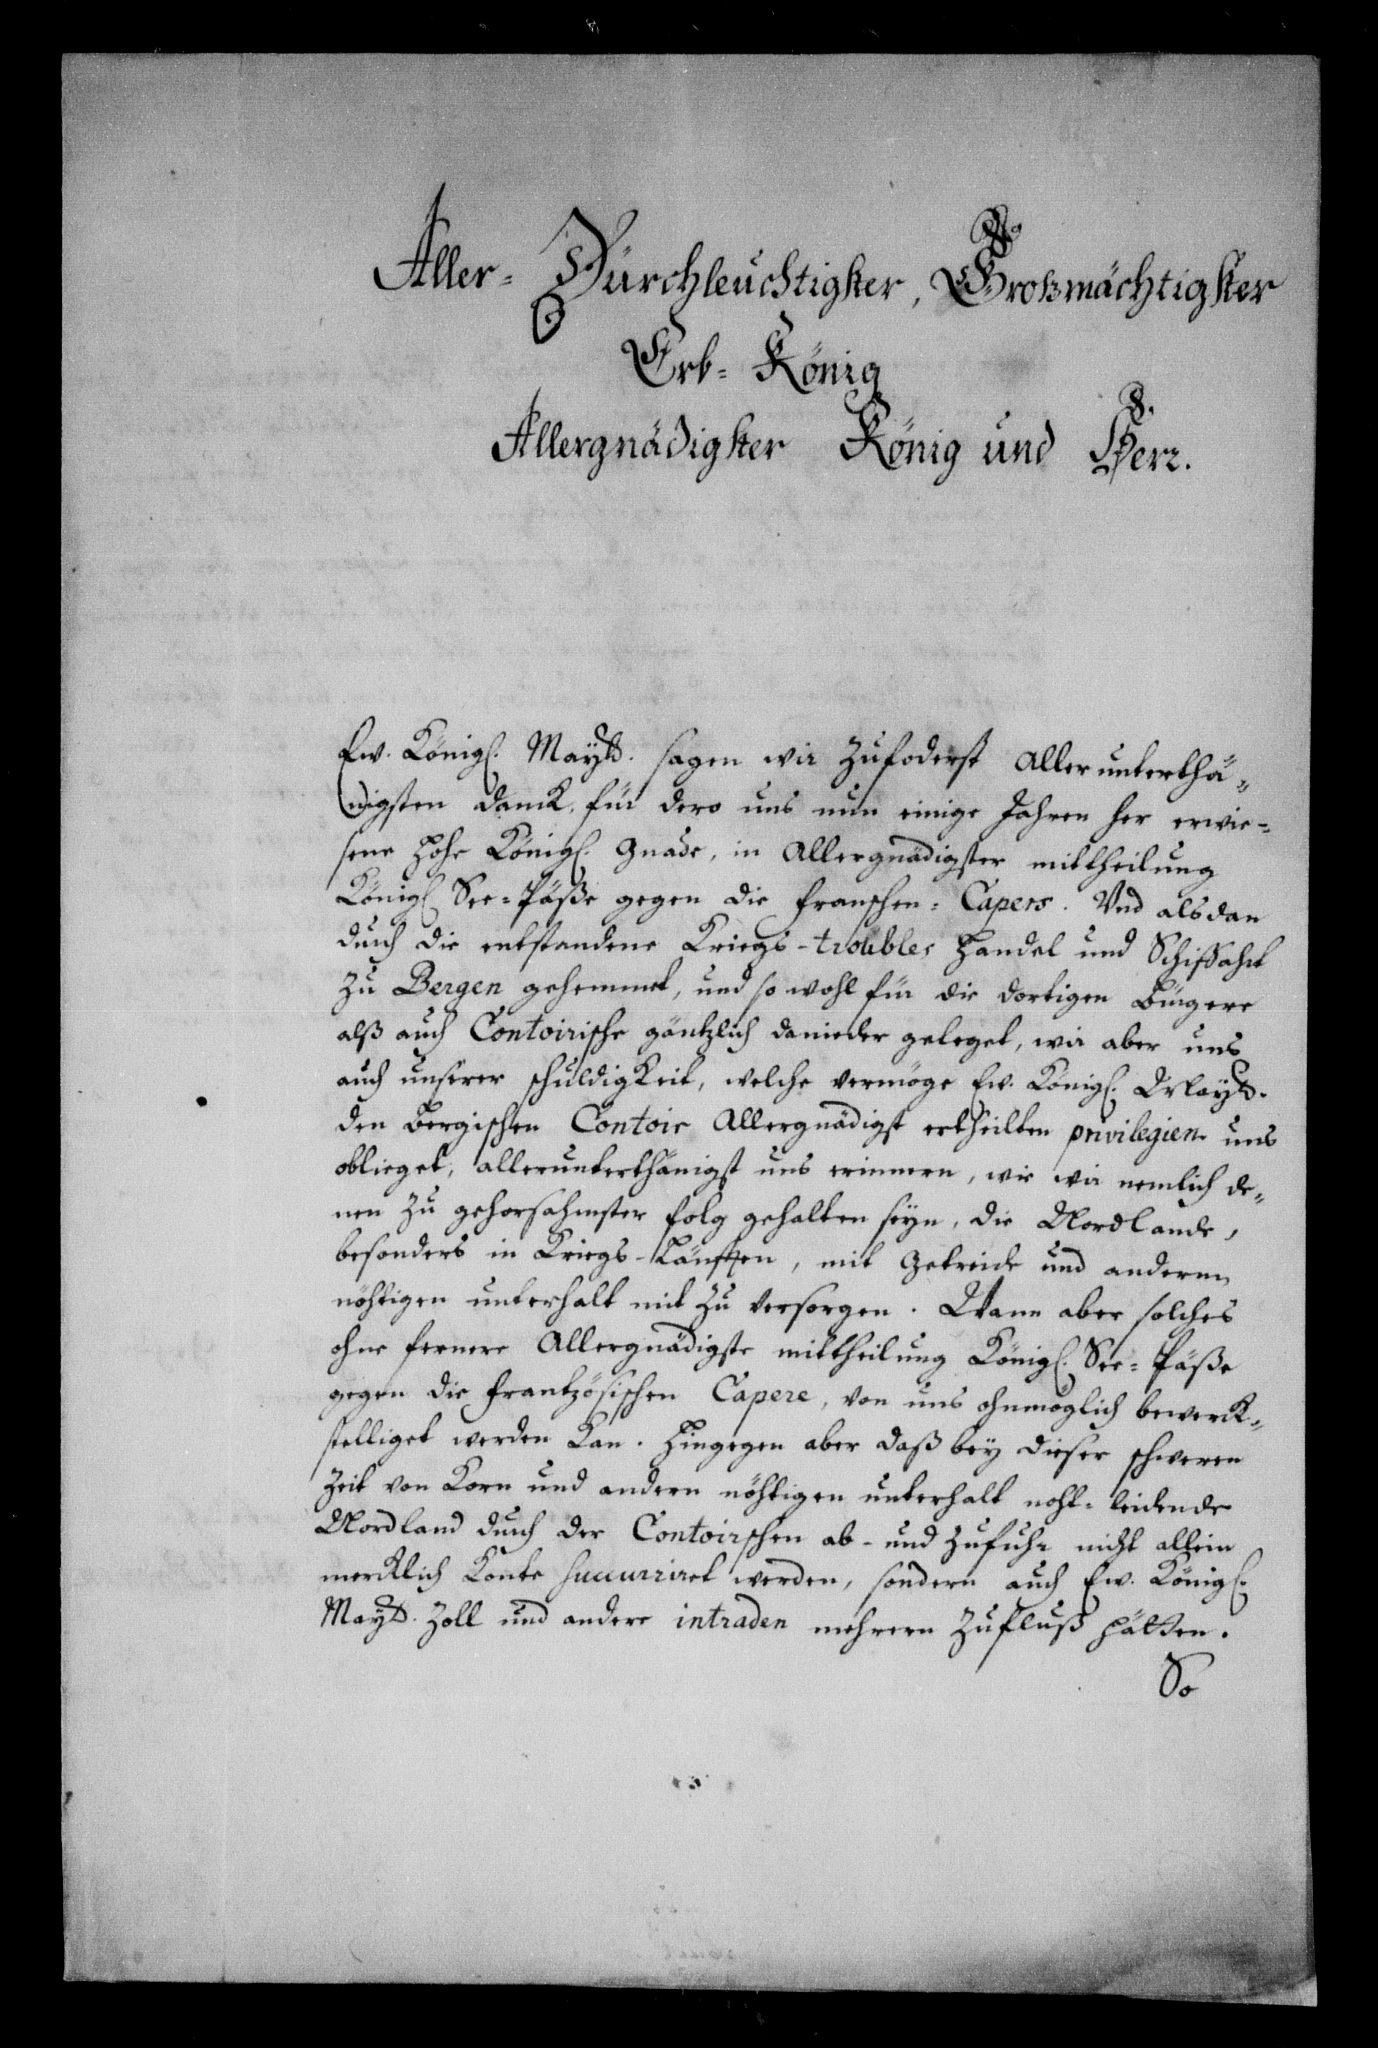 Aller- Durchleuchtigster, Großmächtigster
Erb- König
Allergnädigster König und Herr.
Ew. Königl. Maytt. sagen wir zufoderst Allerunterthä-
nigsten danck, für dero uns nun einige Jahren her erwie-
sene hohe Königl. Gnade, in Allergnädigster mittheilung
Königl See-Päße gegen die franschen- Capers. Und alsdan
durch die entstandene Kriegs-troubles Handel und Schiffahrt
zu Bergen gehemmet, und so wohl für die dortigen Bürgere
alß auch Contoirische gäntzlich danieder geleget, wir aber uns
auch unserer schuldigkeit, welche vermöge Ew. Königl. Maytt.
den Bergischen Contoir Allergnädigst ertheilten privilegien uns
oblieget, allerunterthänigst uns erinnern, wie wir nemlich de-
nen zu gehorsahmster folg gehalten seyn, die Nordlande,
besonders in Kriegs-Läufften, mit Getreide und anderm
nöhtigen unterhalt mit zu versorgen. Wann aber solches
ohne fernere Allergnädigste mittheilung Königl. See-Päße
gegen die frantzösischen Capere, von uns ohnmöglich bewerck-
stelliget werden kan. Hingegen aber daß bey dieser schweren
Zeit von Korn und andern nöhtigen unterhalt noht-leidende
Nordland durch der Contoirschen ab- und zufuhr nicht allein
mercklich konte succurriret werden, sondern auch Ew. Königl.
Maytt. Zoll und andere intraden mehrern Zufluß hätten.
So